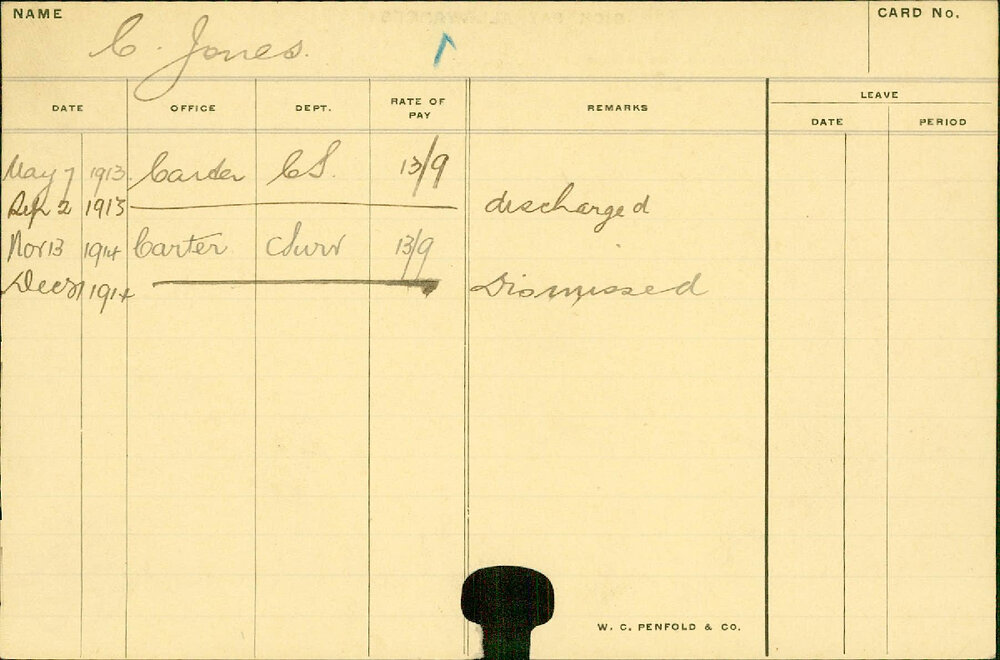 NAME
C. Jones.
CARD No.
DATE OFFICE DEPT. RATE OF PAY REMARKS LEAVE
DATE PERIOD
May 7 1913. Carter CS. 13/9
Sep 2 1913 discharged
Nov 13 1914 Carter CSurv 13/9
Dec 1914 Dismissed
W. C. PENFOLD & CO.